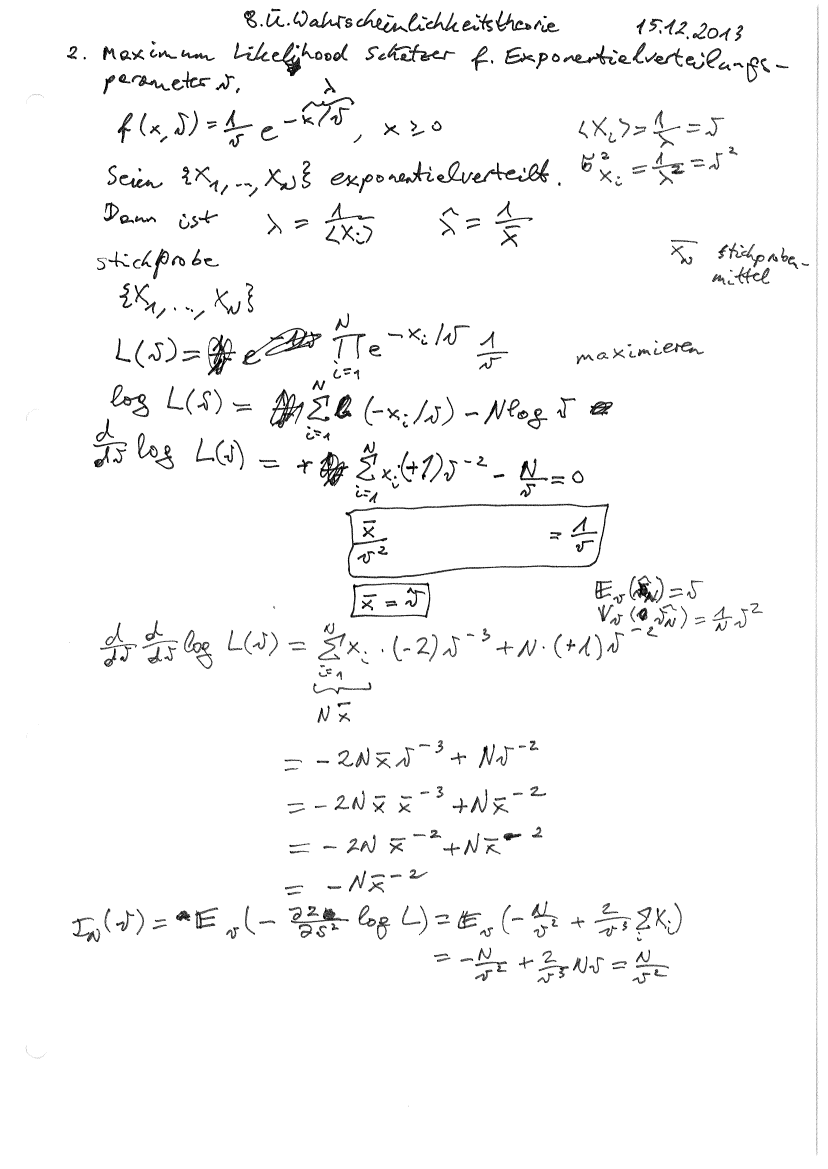 8. Ü. Wahrscheinlichkeitstheorie 15.12.2013
2. Maximum Likelihood Schätzer f. Exponentialverteilungs-
parameter ϑ.
λ
f(x,ϑ) = 1/ϑ e^{-x/ϑ}, x ≥ 0 ⟨X_i⟩ = 1/λ = ϑ
Seien {X_1, .., X_N} exponentialverteilt. σ²_{X_i} = 1/λ² = ϑ²
Dann ist λ = 1/⟨X_i⟩ λ̂ = 1/X̄
X̄_N stichproben-
mittel
stichprobe
{X_1, ..., X_N}
L(ϑ) = ∏_{i=1}^{N} e^{-x_i/ϑ} 1/ϑ maximieren
log L(ϑ) = Σ_{i=1}^{N} (-x_i/ϑ) - N log ϑ
d/dϑ log L(ϑ) = + Σ_{i=1}^{N} x_i (+1) ϑ^{-2} - N/ϑ = 0
x̄/ϑ² = 1/ϑ
x̄ = ϑ̂ E_ϑ(ϑ̂_N) = ϑ
V_ϑ(ϑ̂_N) = 1/N ϑ²
d/dϑ d/dϑ log L(ϑ) = Σ_{i=1}^{N} x_i · (-2) ϑ^{-3} + N · (+1) ϑ^{-2}
N x̄
= - 2N x̄ ϑ^{-3} + Nϑ^{-2}
= - 2N x̄ x̄^{-3} + N x̄^{-2}
= - 2N x̄^{-2} + N x̄^{-2}
= - N x̄^{-2}
I_N(ϑ) = E_ϑ(- ∂²/∂ϑ² log L) = E_ϑ(- N/ϑ² + 2/ϑ³ Σ_i X_i)
= - N/ϑ² + 2/ϑ³ Nϑ = N/ϑ²